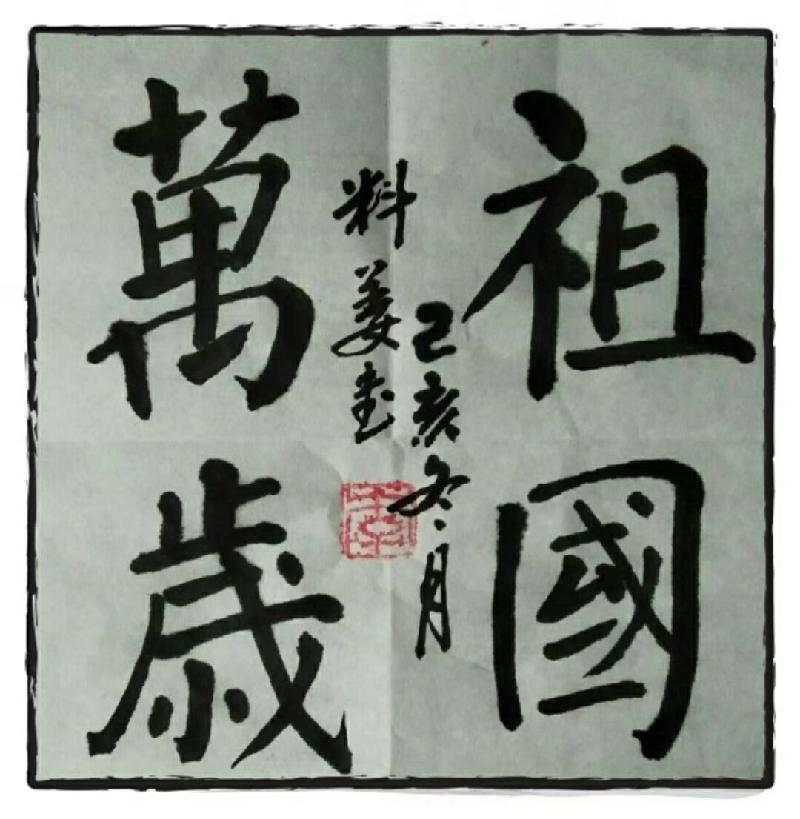 祖國
萬歲
己亥冬月
料姜书